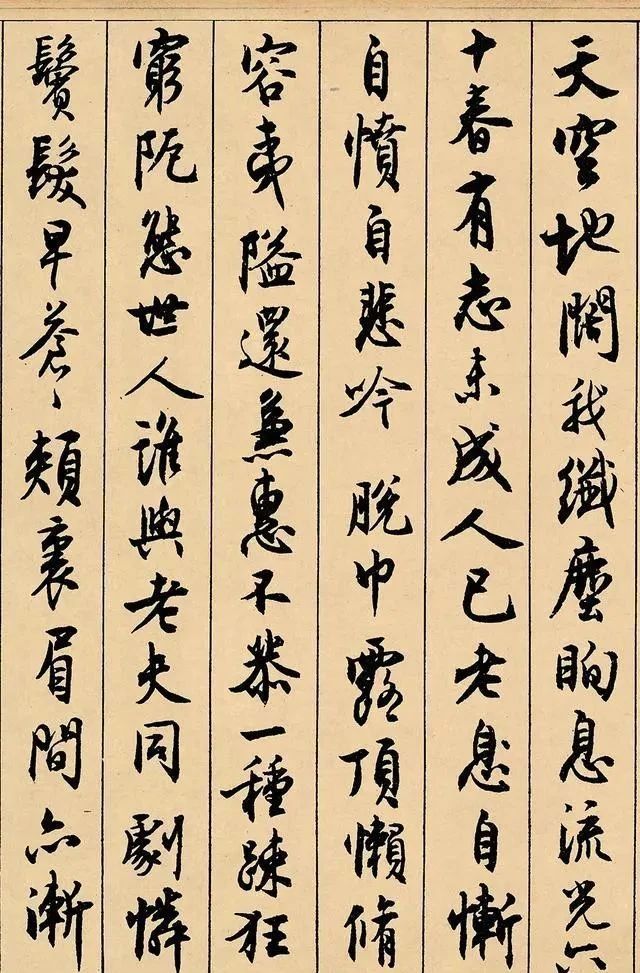 天空地闊我纖塵眴息流光六
十春有志未成人已老息自慚
自憤自悲吟 脫巾露頂懶脩
容夷隘還兼惠不恭一種疎狂
窮阨態世人誰與老夫同 劇憐
鬢髮早蒼〻頰裏眉間亦漸